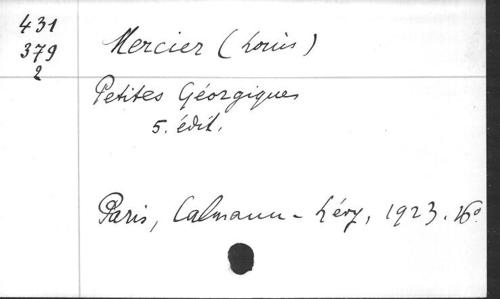 431
379
2
Mercier (Louis)
Petites Géorgiques
5. édit.
Paris, Calmann-Lévy, 1923. 16°